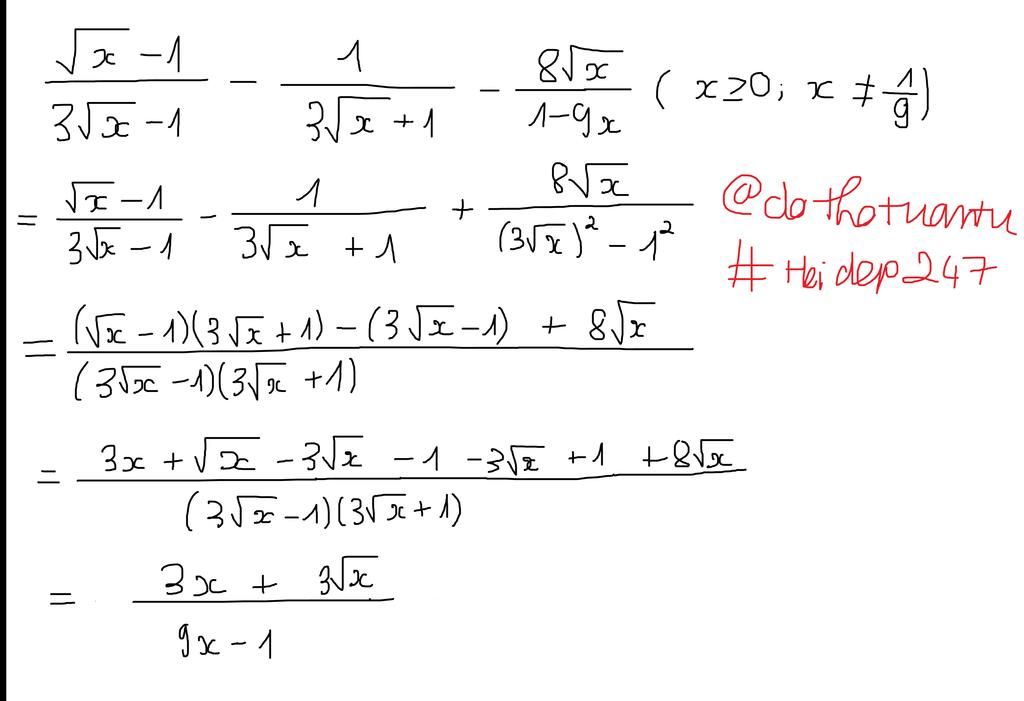 (√x - 1)/(3√x - 1) - 1/(3√x + 1) - 8√x/(1 - 9x) ( x ≥ 0; x ≠ 1/9)
= (√x - 1)/(3√x - 1) - 1/(3√x + 1) + 8√x/((3√x)² - 1²)
@dothotuantu
#Heidep247
= ((√x - 1)(3√x + 1) - (3√x - 1) + 8√x)/((3√x - 1)(3√x + 1))
= (3x + √x - 3√x - 1 - 3√x + 1 + 8√x)/((3√x - 1)(3√x + 1))
= (3x + 3√x)/(9x - 1)